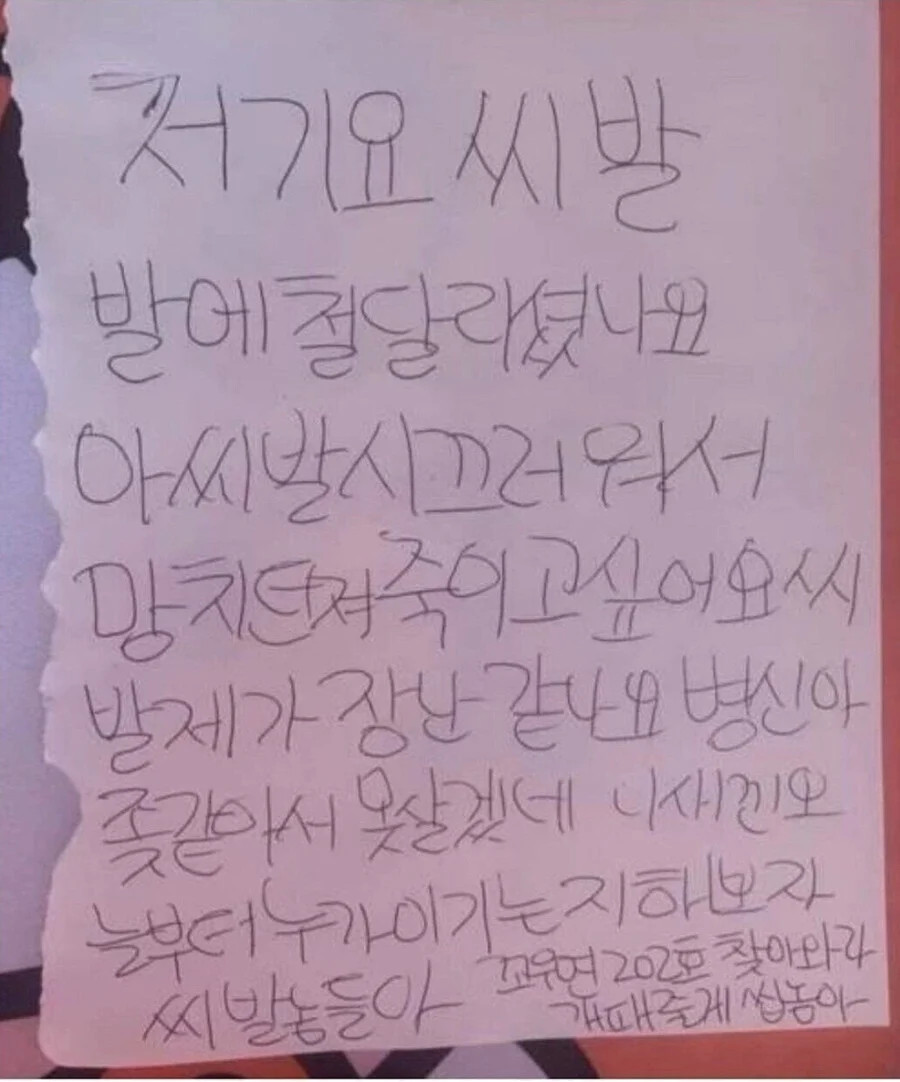 저기요 씨발
발에 철달리셨나요
아씨발시끄러워서
망치던져죽이고싶어요 씨
발제가 장난 같나요 병신아
좆같아서 못살겠네 니새낀오
늘부터 누가이기는지 해보자
씨발놈들아
꼬우면 202호 찾아와라
개패줄게 씹놈아